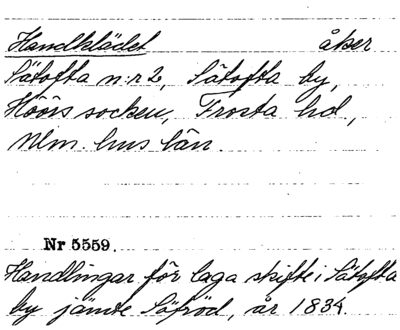 Handklädet åker
Sätofta n:r 2, Sätofta by,
Höörs socken, Frosta hd,
Mlm. hus län.
Nr 5559.
Handlingar för laga skifte i Sätofta
by jämte Säfröd, år 1834